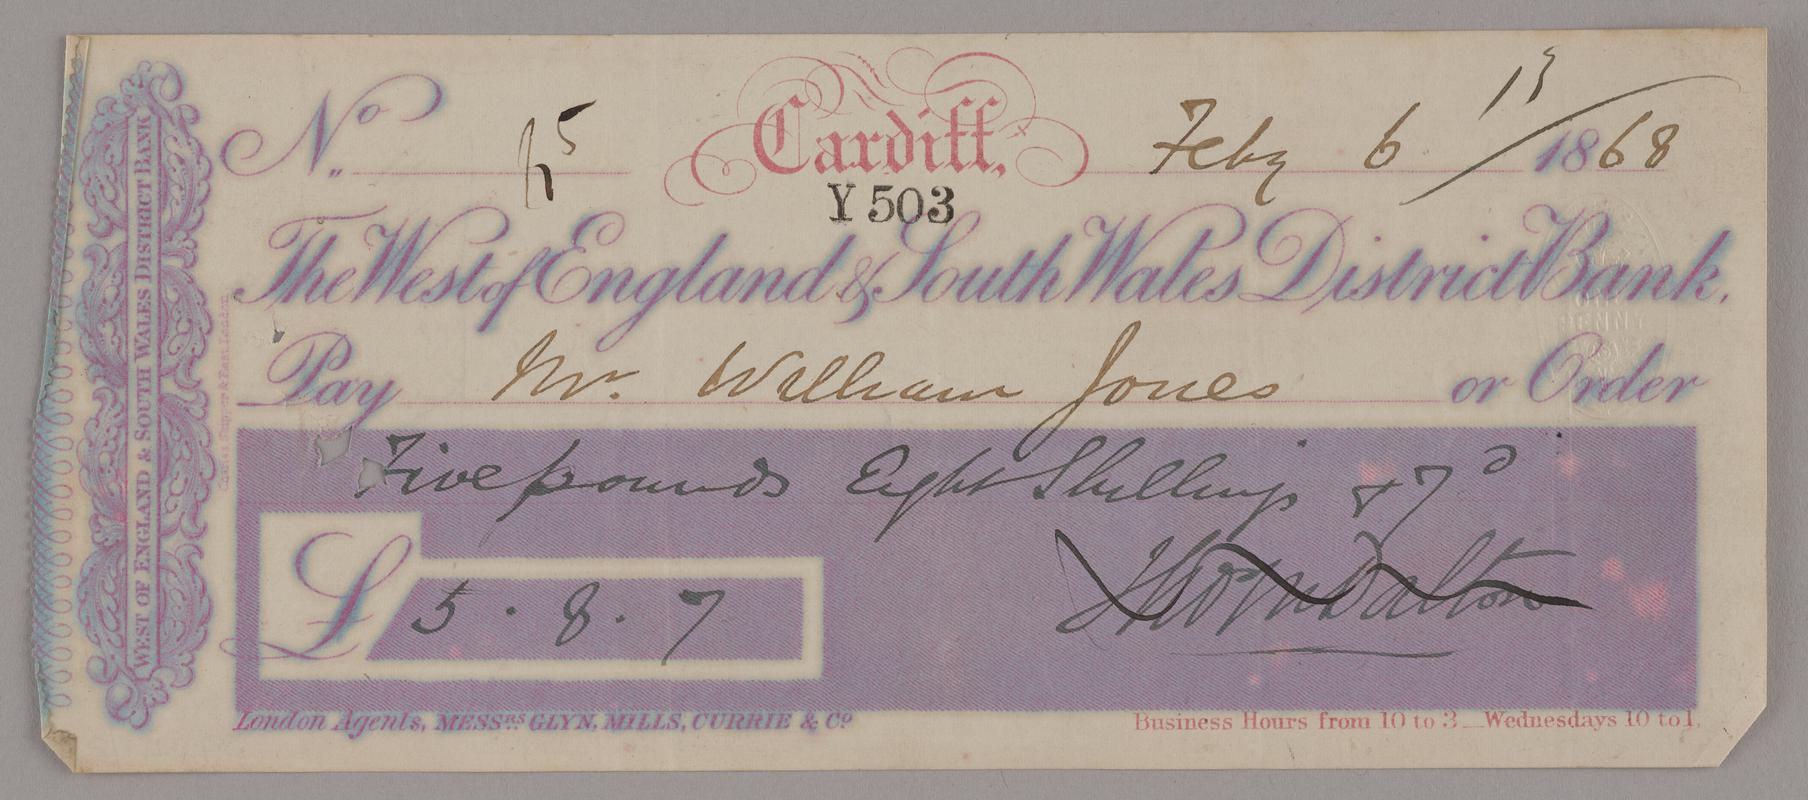 WEST OF ENGLAND & SOUTH WALES DISTRICT BANK
No.
Cardiff, Feby 6 1868
13
Y 503
The West of England & South Wales District Bank.
Pay Mr. William Jones or Order
Five pounds Eight Shillings & 7d
£ 5 . 8 . 7
Dalton
London Agents, MESSRS GLYN, MILLS, CURRIE & Co
Business Hours from 10 to 3 _ Wednesdays 10 to 1.
PENNY